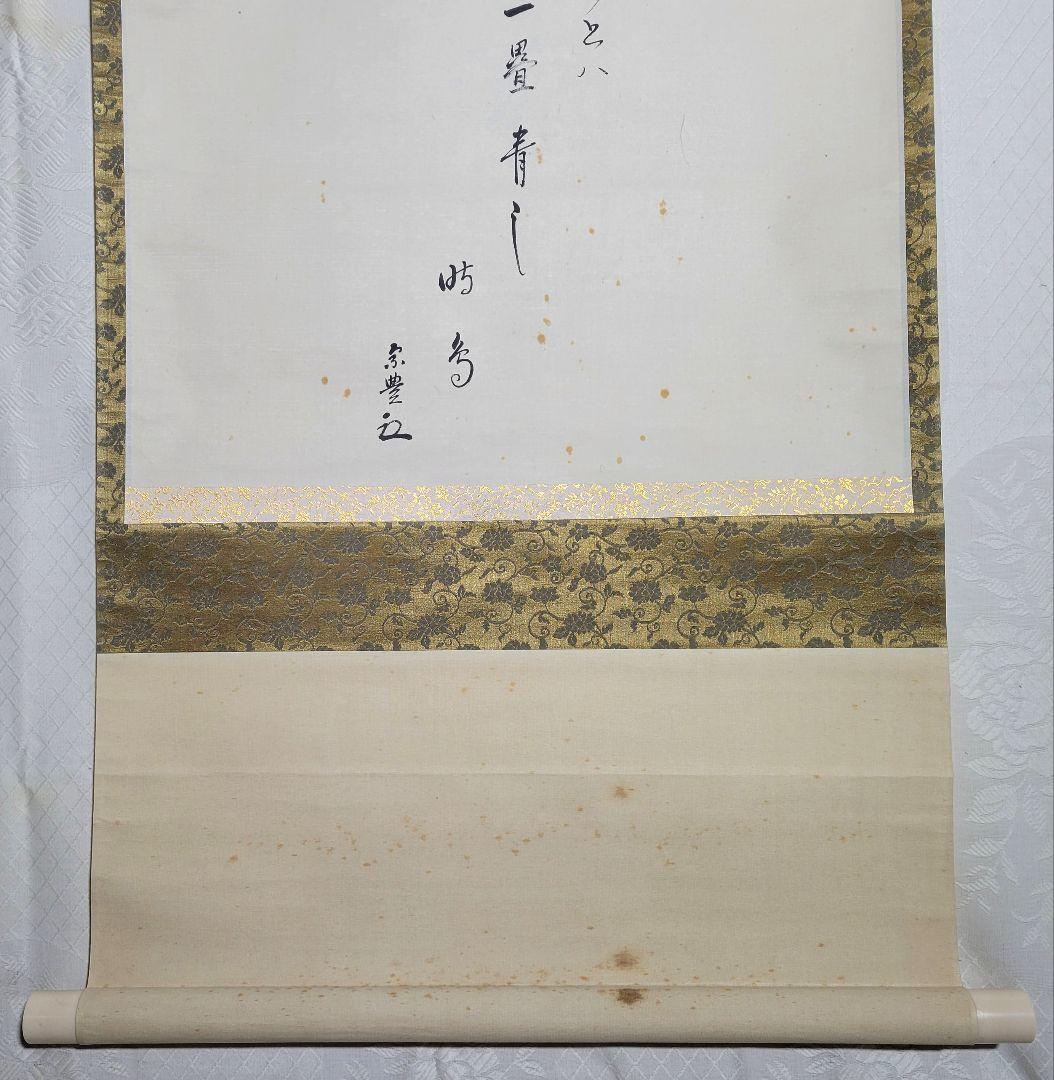 とハ
一畳青し
時鳥
宗豊